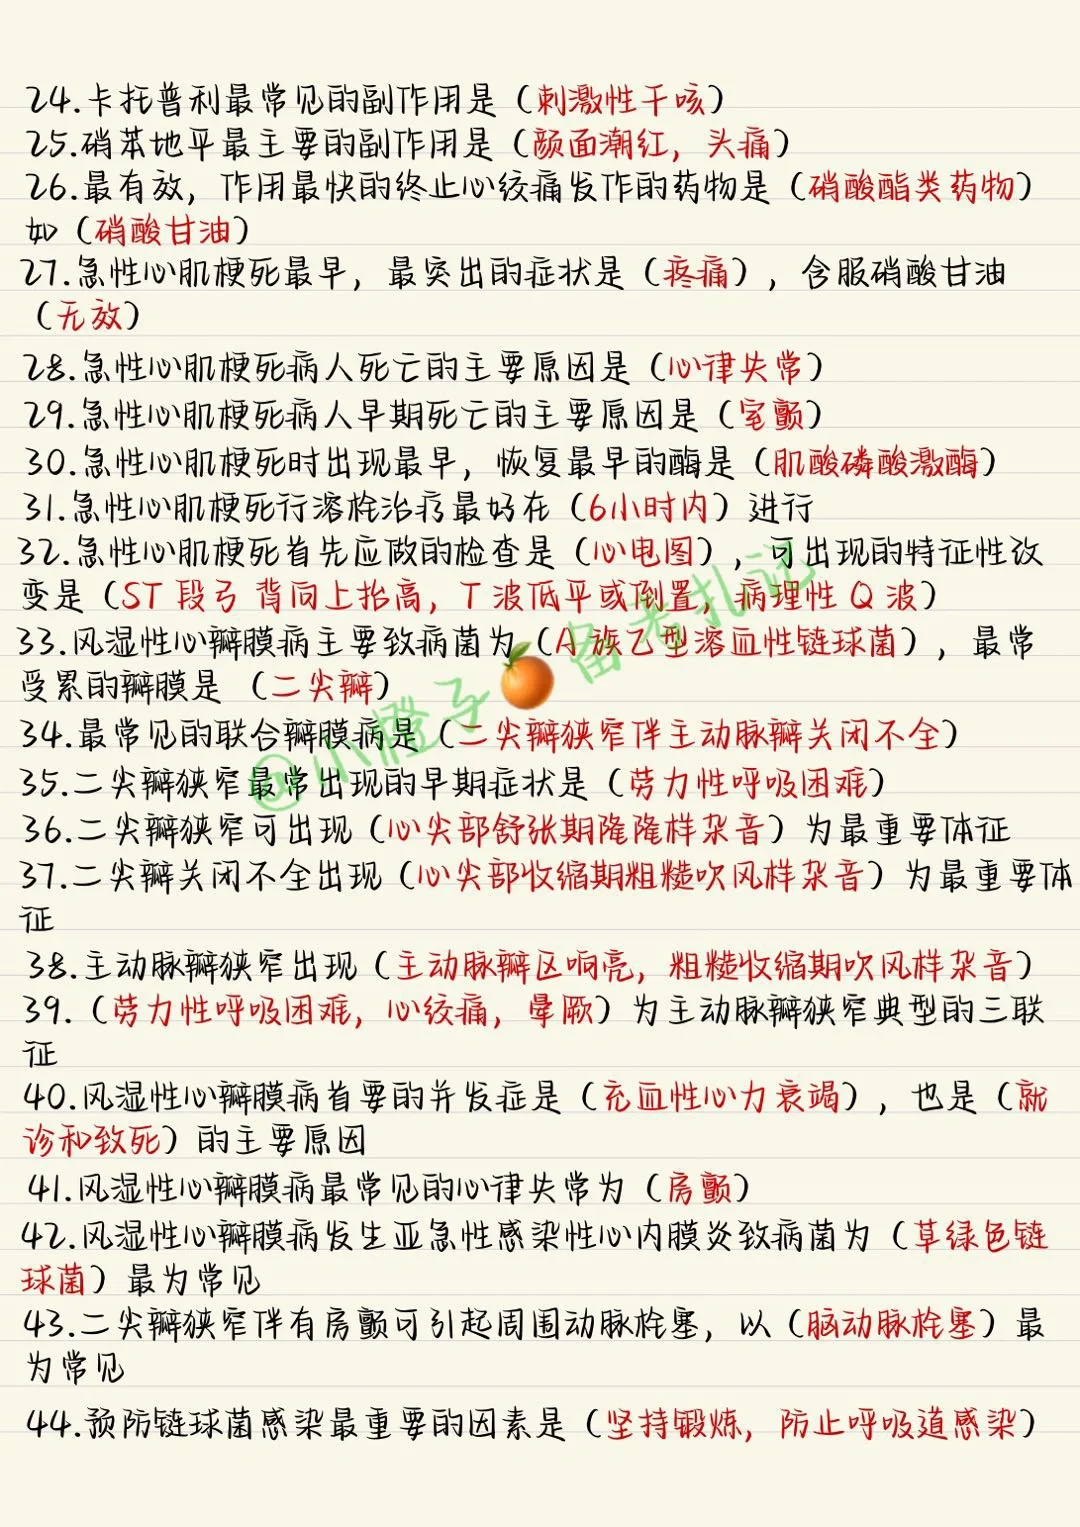 24.卡托普利最常见的副作用是（刺激性干咳）
25.硝苯地平最主要的副作用是（颜面潮红，头痛）
26.最有效，作用最快的终止心绞痛发作的药物是（硝酸酯类药物）
如（硝酸甘油）
27.急性心肌梗死最早，最突出的症状是（疼痛），含服硝酸甘油
（无效）
28.急性心肌梗死病人死亡的主要原因是（心律失常）
29.急性心肌梗死病人早期死亡的主要原因是（室颤）
30.急性心肌梗死时出现最早，恢复最早的酶是（肌酸磷酸激酶）
31.急性心肌梗死行溶栓治疗最好在（6小时内）进行
32.急性心肌梗死首先应做的检查是（心电图），可出现的特征性改
变是（ST 段弓 背向上抬高，T 波低平或倒置，病理性 Q 波）
33.风湿性心瓣膜病主要致病菌为（A 族乙型溶血性链球菌），最常
受累的瓣膜是 （二尖瓣）
34.最常见的联合瓣膜病是（二尖瓣狭窄伴主动脉瓣关闭不全）
35.二尖瓣狭窄最常出现的早期症状是（劳力性呼吸困难）
36.二尖瓣狭窄可出现（心尖部舒张期隆隆样杂音）为最重要体征
37.二尖瓣关闭不全出现（心尖部收缩期粗糙吹风样杂音）为最重要体
征
38.主动脉瓣狭窄出现（主动脉瓣区响亮，粗糙收缩期吹风样杂音）
39.（劳力性呼吸困难，心绞痛，晕厥）为主动脉瓣狭窄典型的三联
征
40.风湿性心瓣膜病首要的并发症是（充血性心力衰竭），也是（就
诊和致死）的主要原因
41.风湿性心瓣膜病最常见的心律失常为（房颤）
42.风湿性心瓣膜病发生亚急性感染性心内膜炎致病菌为（草绿色链
球菌）最为常见
43.二尖瓣狭窄伴有房颤可引起周围动脉栓塞，以（脑动脉栓塞）最
为常见
44.预防链球菌感染最重要的因素是（坚持锻炼，防止呼吸道感染）
@小橙子🍊备考札记